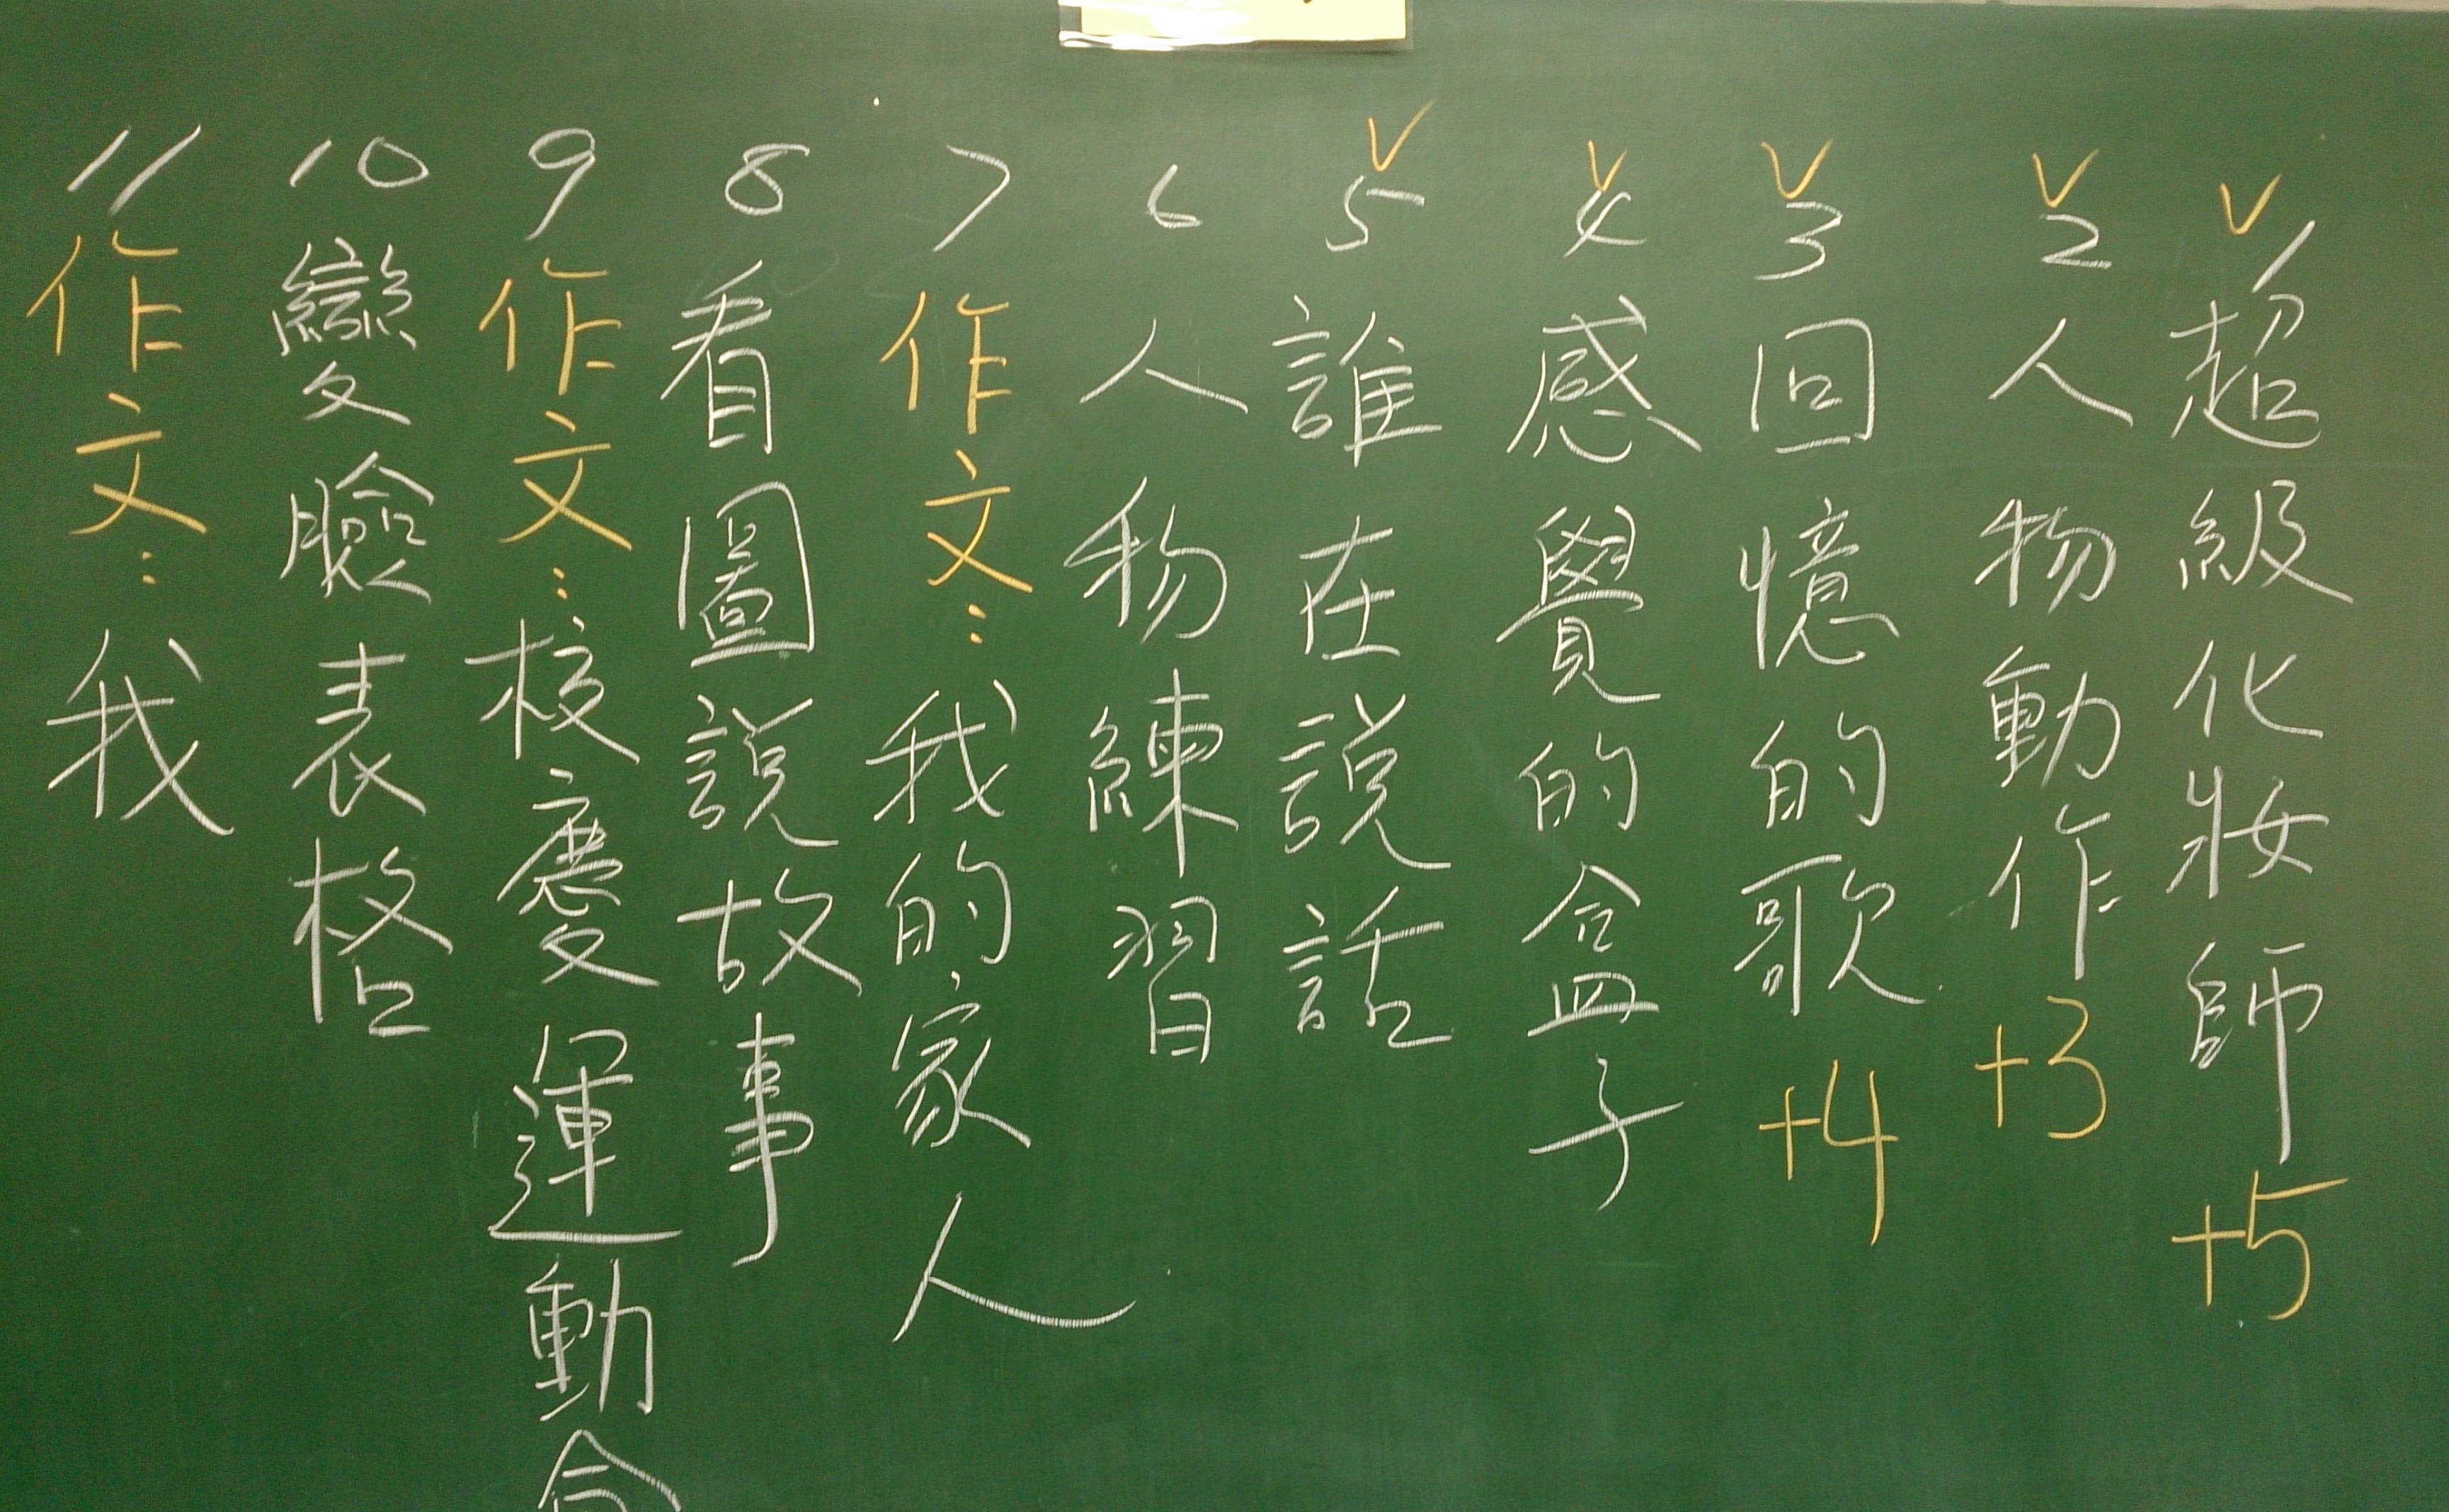 ✓1超級化妝師+5
✓2人物動作+3
✓3回憶的歌+4
✓4感覺的盒子
✓5誰在說話
6人物練習
7作文：我的家人
8看圖說故事
9作文：校慶運動會
10變臉表格
11作文：我